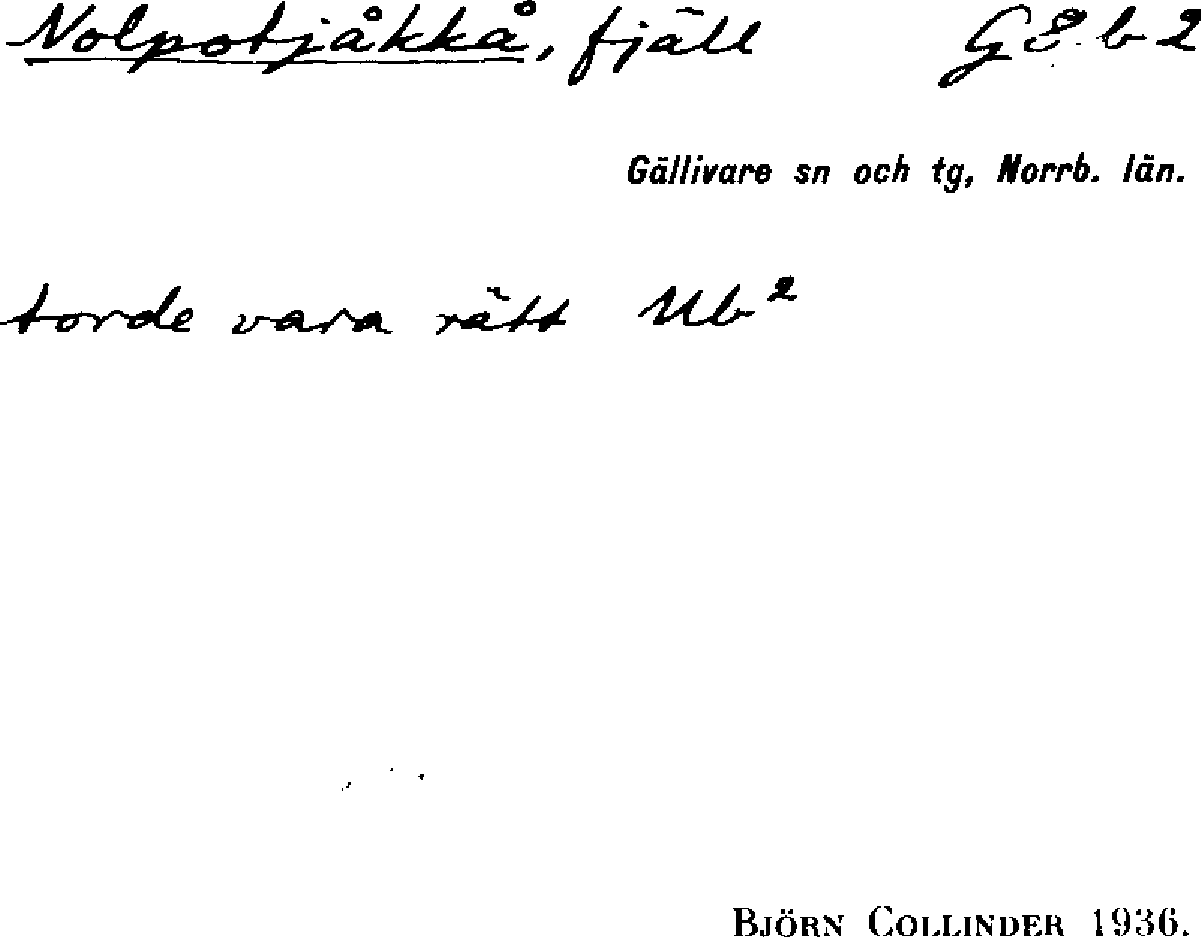 Nolpotjåkkå, fjäll GE. b 2
Gällivare sn och tg, Norrb. län.
torde vara rätt Ub²
BJÖRN COLLINDER 1936.